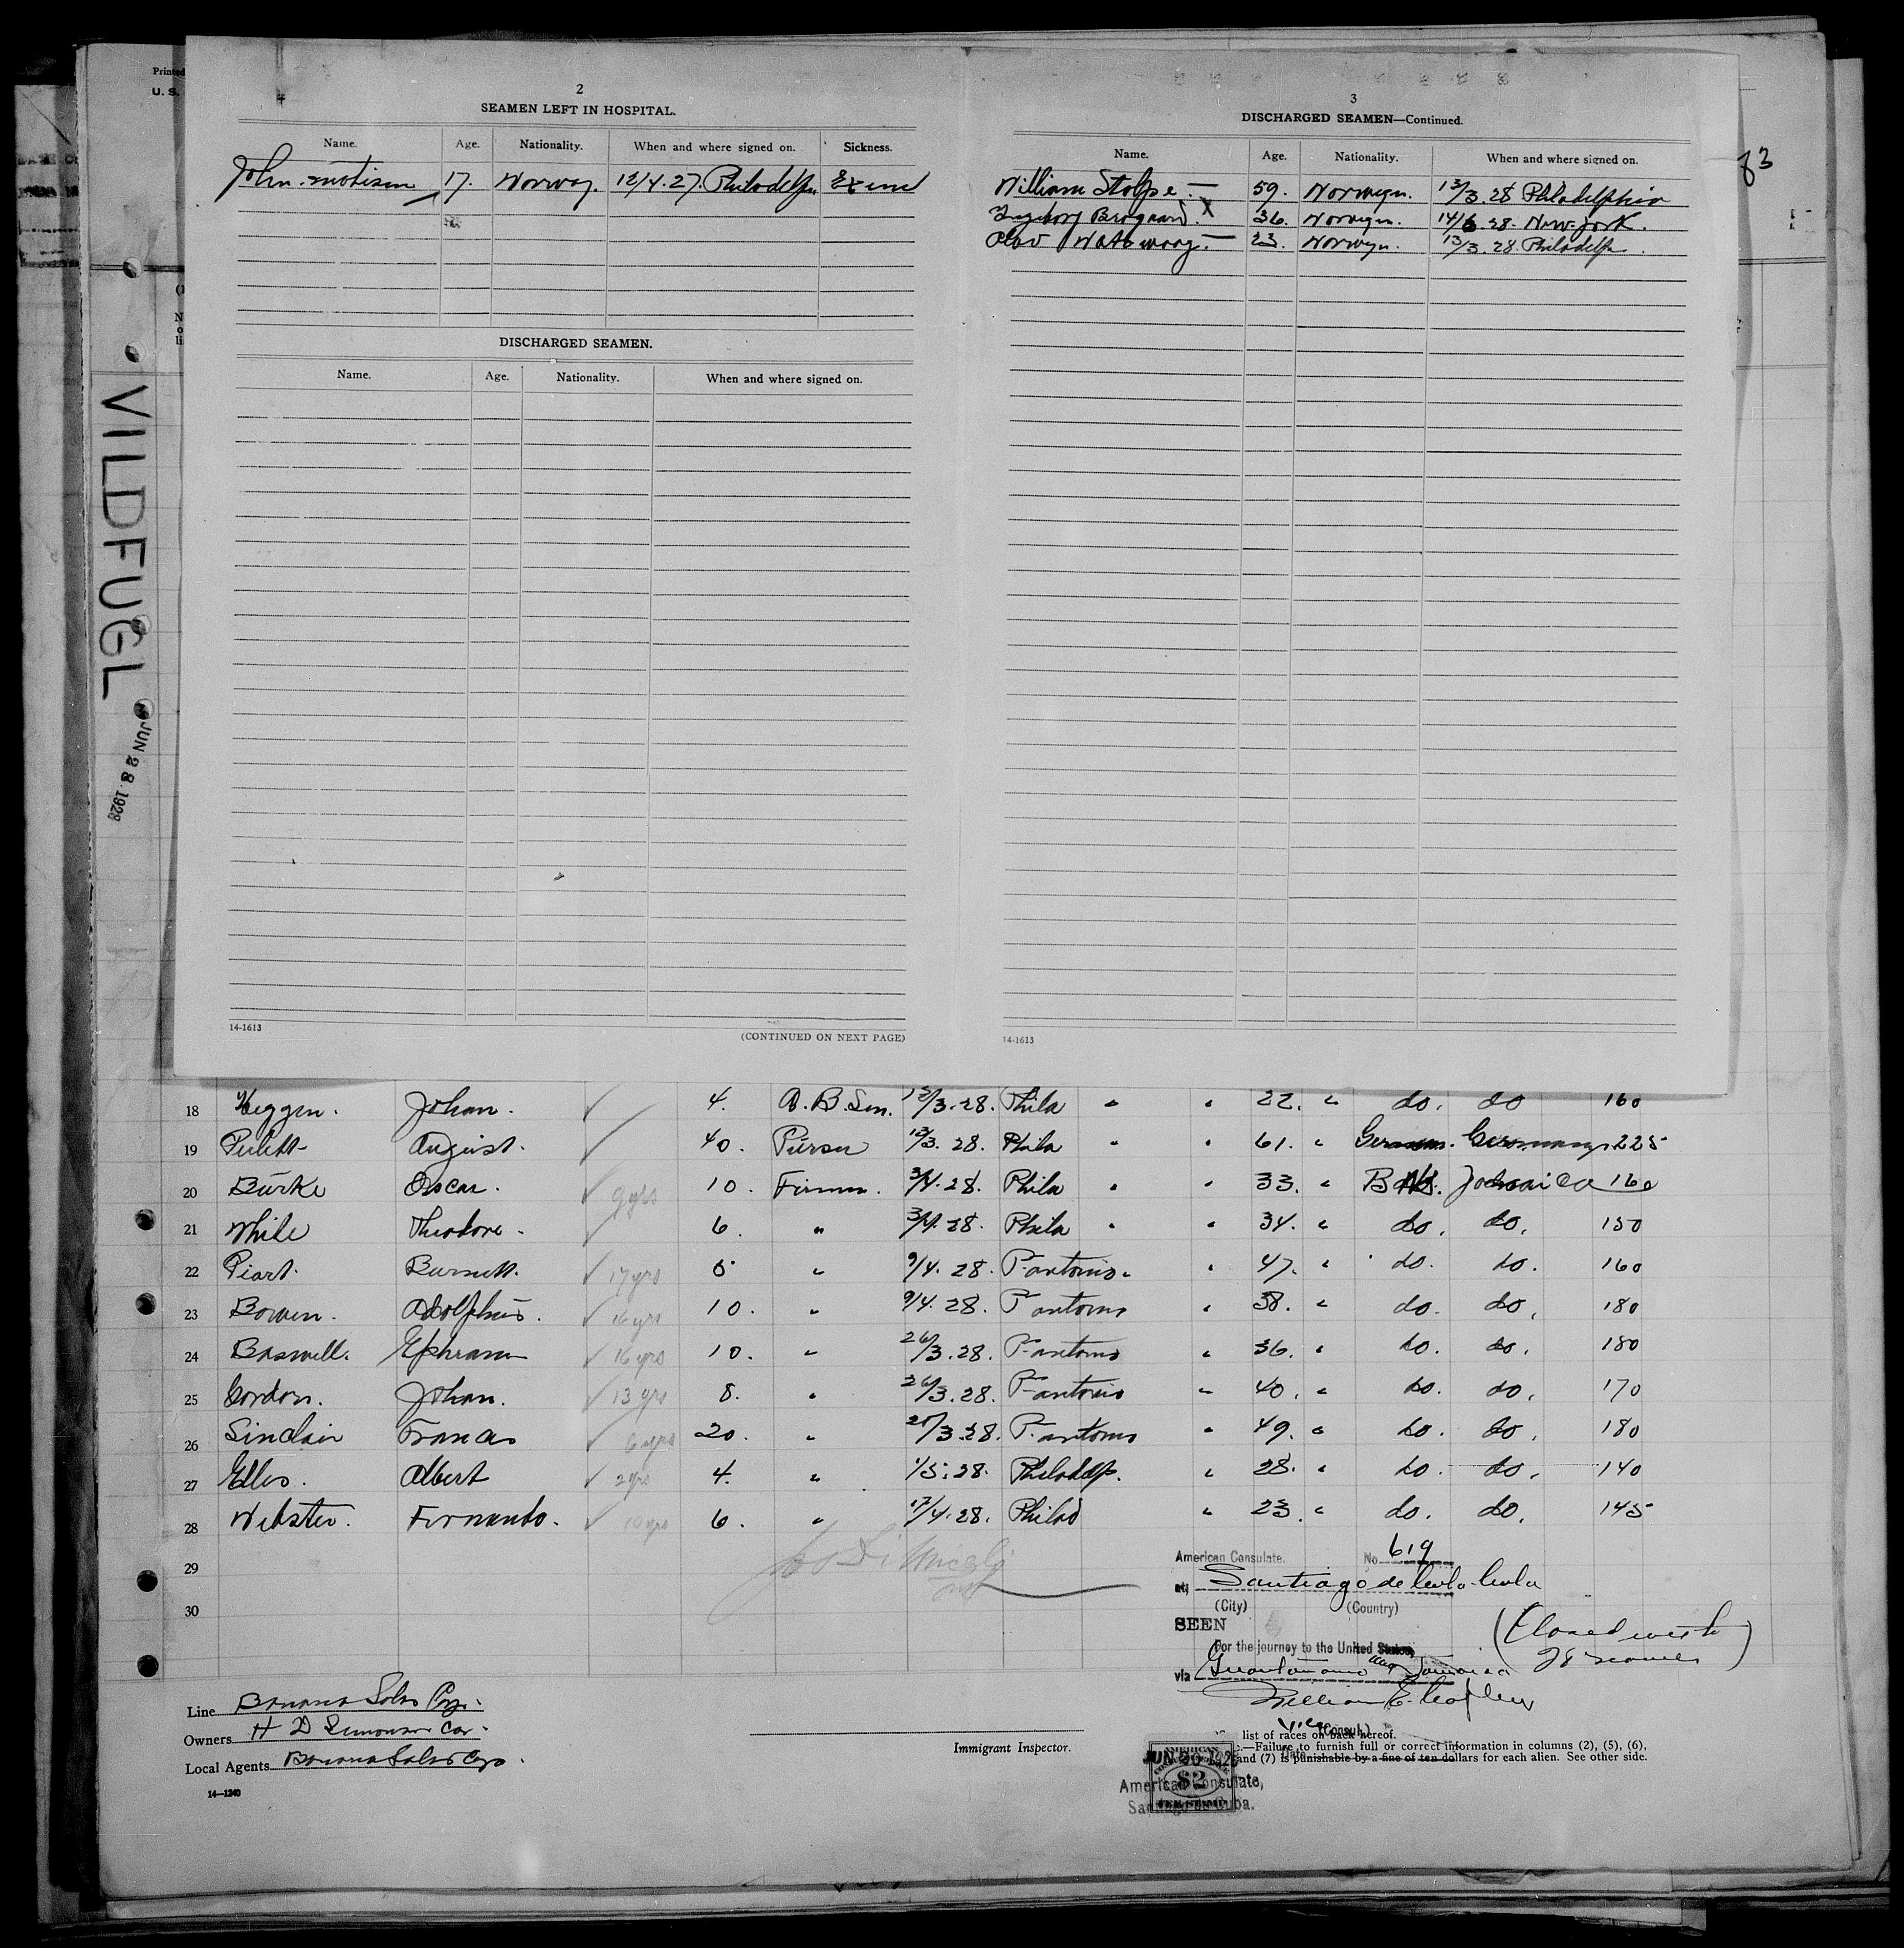 Printed
U. S.
2
SEAMEN LEFT IN HOSPITAL.
Name. Age. Nationality. When and where signed on. Sickness.
John 17. Norway. 12/4.27. Philadelp.
DISCHARGED SEAMEN.
Name. Age. Nationality. When and where signed on.
14-1613
(CONTINUED ON NEXT PAGE)
3
DISCHARGED SEAMEN—Continued.
Name. Age. Nationality. When and where signed on.
William Stolpe. — 59. Norwegn. 13/3.28 Philadelphia
Ingeborg Brogaard. X 36. Norwegn. 14/6.28. New-York.
Olav — 23. Norwegn. 13/3.28. Philadelp.
14-1613
83
VILDFUGL
JUN 28 1928
18 Heggen. Johan. ✓ 4. A.B. Sen. /3.28. Phila " " 22. " do. do 160
19 August. ✓ 40. 13/3. 28. Phila " " 61. " German. Germany. 225
20 Burke Oscar. ✓ 9 yrs 10. Firem. 3/4.28. Phila " " 33. " Jamaica 160
21 White Theodore. ✓ 6. " 3/4.28. Phila " " 34. " do. do. 150
22 Burnett. ✓ 17 yrs " 9/4.28. P. antonio. " 47. " do. do. 160
23 Bowen. Adolphus. ✓ 16 yrs 10. " 9/4.28. P antonio " 38. " do. do. 180
24 Boswell. Ephraim ✓ 16 yrs 10. " 26/3.28. P. antonio " 36. " do. do. 180
25 Gordon. Johan. ✓ 13 yrs 8. " 26/3.28. P. antonio " 40. " do. do. 170
26 Sinclair Francis ✓ 6 yrs 20. " /3.28. P. antonio " 49. " do. do. 180
27 Ellis. Albert ✓ 2 yrs 4. " 1/5.28. Philadelp. " 28. " do. do. 140
28 Webster. Fernando. ✓ 10 yrs 6. " 17/4.28. Philad " 23. " do. do. 145
29
30
American Consulate. No. 619
at Santiago de Cuba Cuba
(City) (Country)
SEEN
For the journey to the United States,
via Guantanamo Jamaica
(Closed with
28 names)
William E.
Vice (Consul.)
Line Banana Sales Corp.
Owners H D
Local Agents Banana Sales Corp.
14—1240
Immigrant Inspector.
list of races on back hereof.
—Failure to furnish full or correct information in columns (2), (5), (6),
and (7) is punishable by a fine of ten dollars for each alien. See other side.
AMERICAN
$2
FEE STAMP
American Consulate,
Santiago de Cuba.